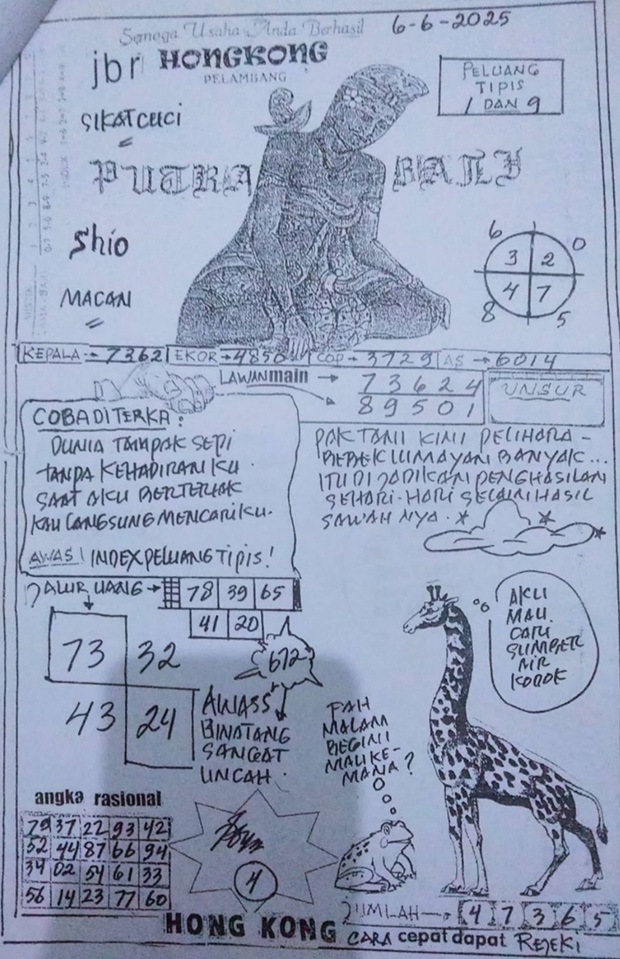 Semoga Usaha Anda Berhasil
6-6-2025
jbr HONGKONG
PELAMBANG
PELUANG
TIPIS
1 DAN 9
SIKAT CUCI
PUTRA BALI
Shio
MACAN
6 0
3 2
4 7
8 5
KEPALA → 7362 EKOR → 4850 COP → 3729 AS → 6014
LAWAN main → 73624
89501
UNSUR
COBA DITERKA :
DUNIA TAMPAK SEPI
TANPA KEHADIRAN KU.
SAAT AKU BERTERIAK
KAU LANGSUNG MENCARIKU.
AWAS! INDEX PELUANG TIPIS!
PAK TANI KINI PELIHARA-
BEBEK LUMAYAN BANYAK...
ITU DIJADIKAN PENGHASILAN
SEHARI-HARI SELAIN HASIL
SAWAH NYA.
JALUR UANG → 78 39 65
41 20
73 32
43 24
672
AWASS
BINATANG
SANGAT
LINCAH.
AKU
MAU
CARI
SUMBER
AIR
KODOK
PAH
MALAM
BEGINI
MAU KE-
MANA?
angka rasional
79 37 22 93 42
52 44 87 66 94
34 02 54 61 33
56 14 23 77 60
4
JUMLAH → 4 7 3 6 5
HONG KONG CARA cepat dapat REJEKI